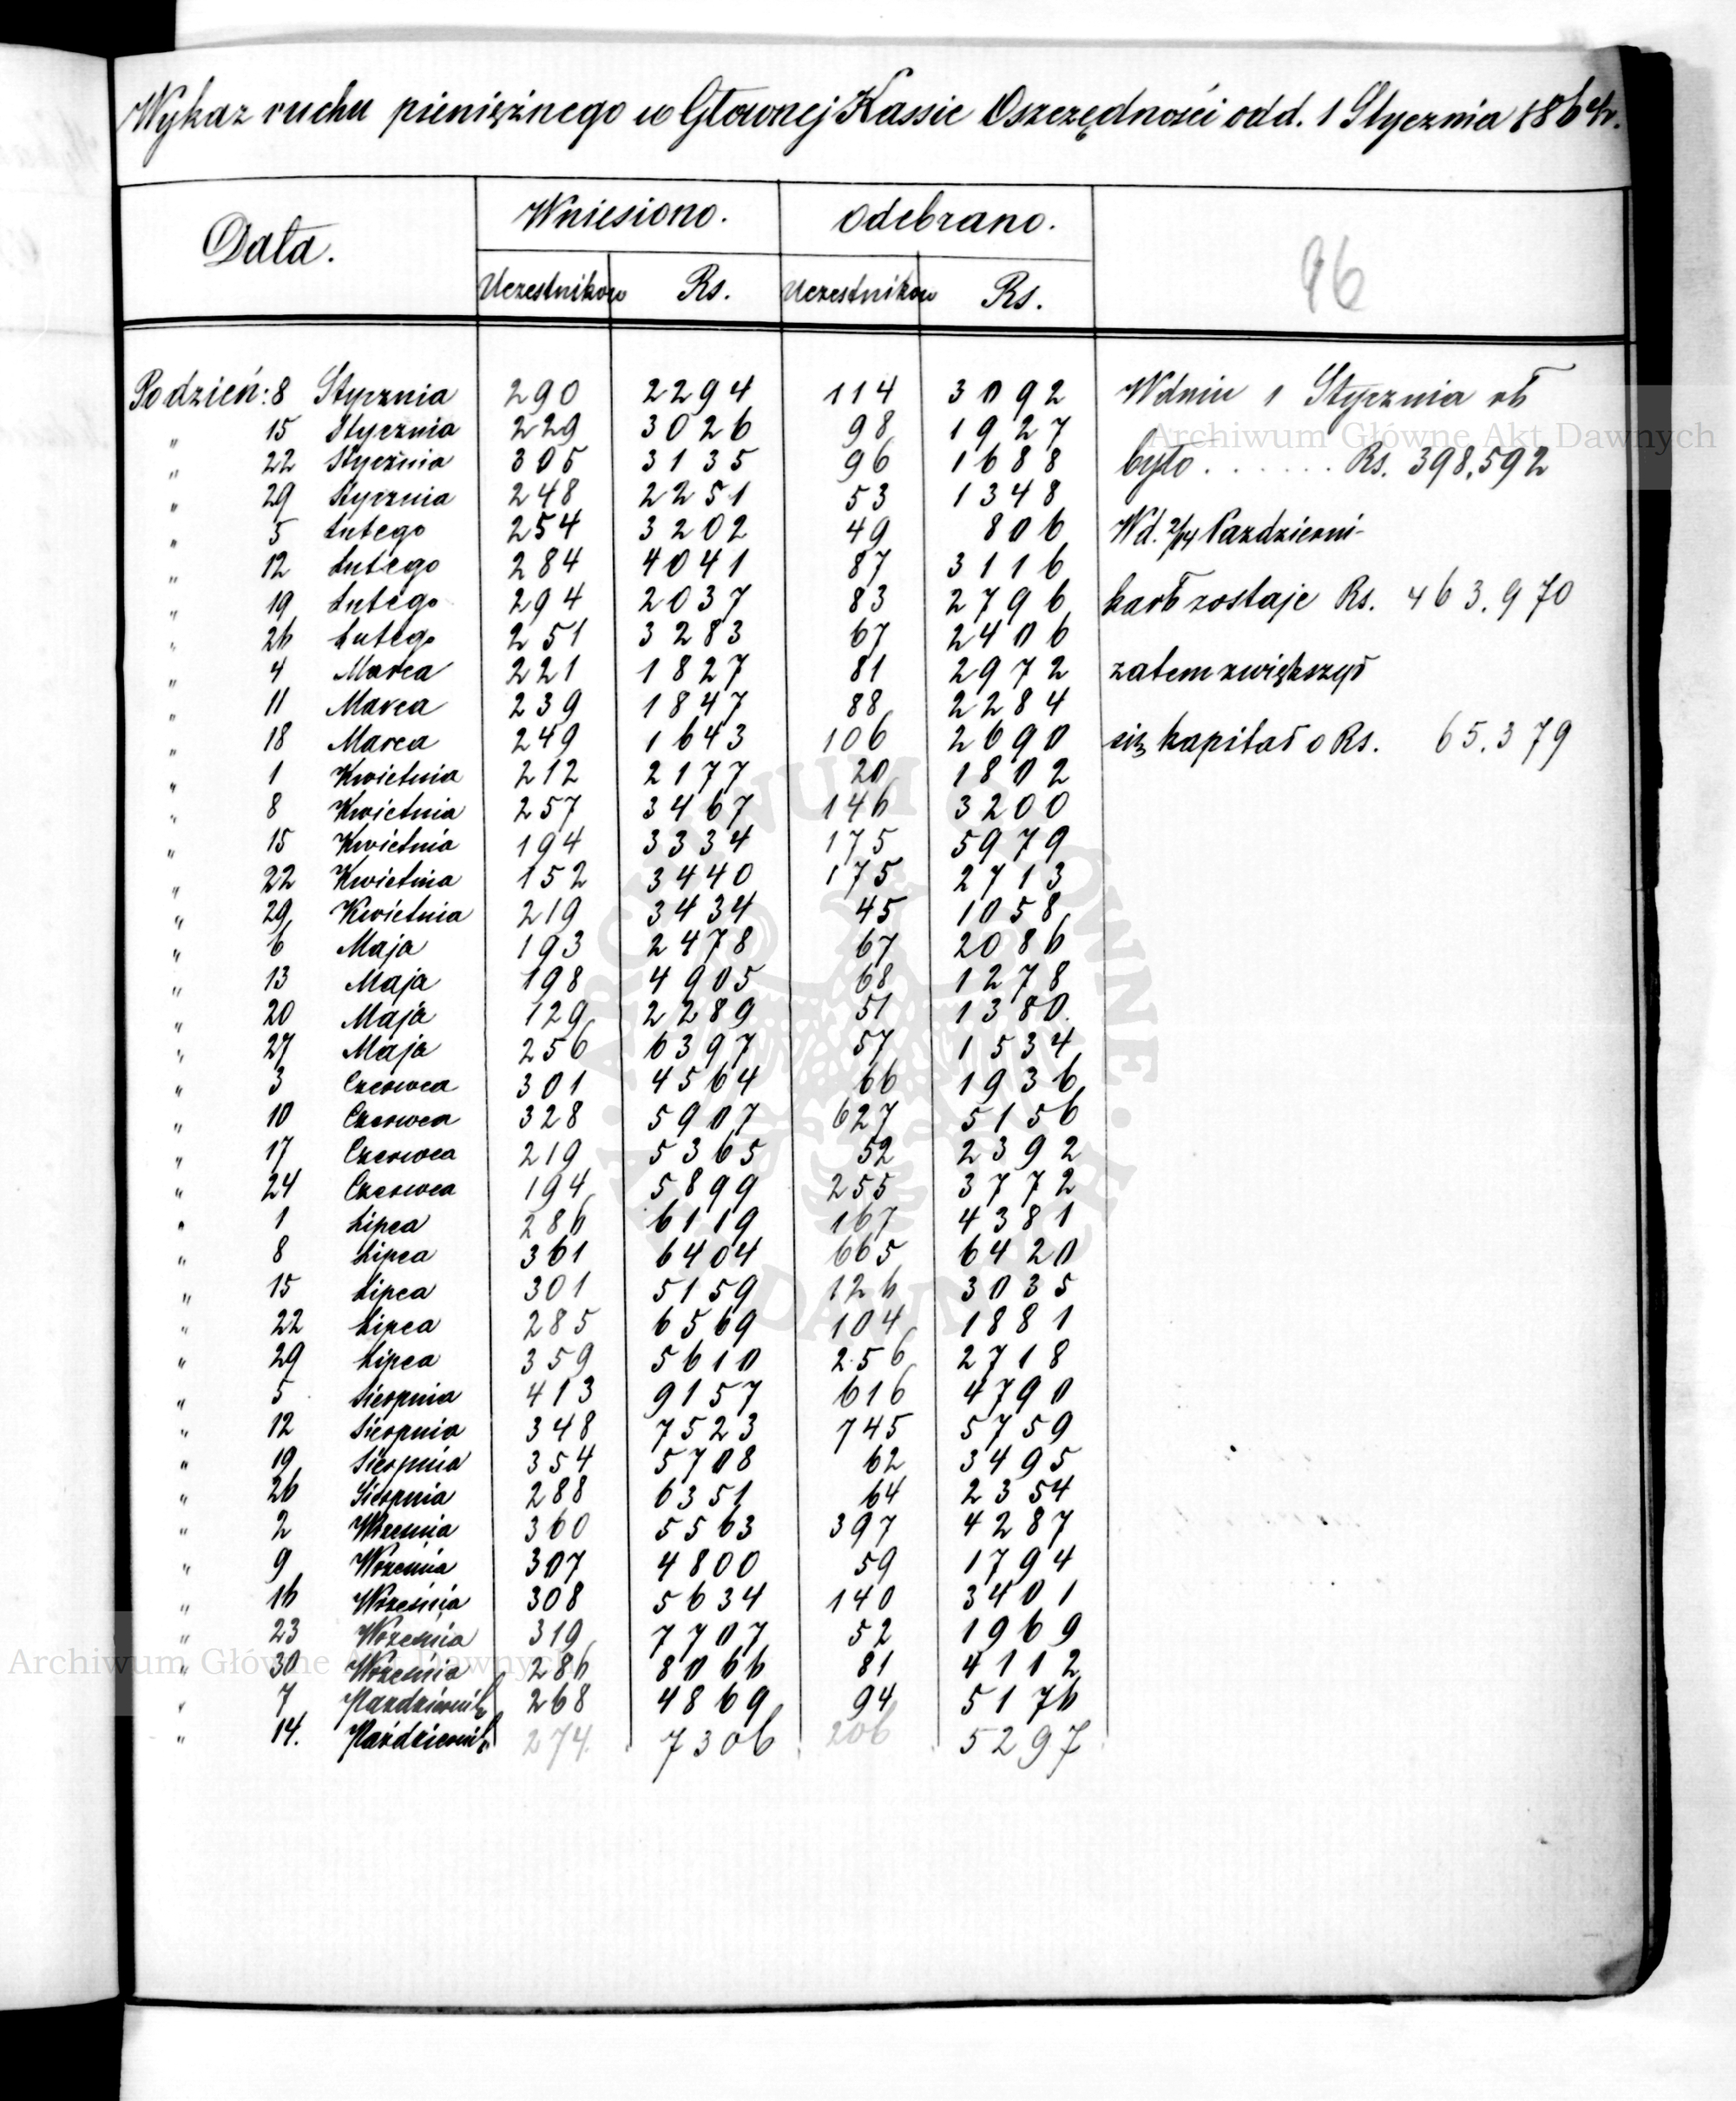 Wykaz ruchu pieniężnego w Głownej Kassie Oszczędności od d. 1 Stycznia 1864 r.
Data.
Wniesiono.
Odebrano.
96
Uczestników Rs. Uczestników Rs.
Po dzień: 8 Stycznia 290 2294 114 3092 W dniu 1 Stycznia rb
" 15 Stycznia 229 3026 98 1927
" 22 Stycznia 305 3135 96 1688 było . . . . . . Rs. 398.592
" 29 Stycznia 248 2251 53 1348
" 5 Lutego 254 3202 49 806 W d. 2/14 Pazdzierni-
" 12 Lutego 284 4041 87 3116
" 19 Lutego 294 2037 83 2796 ka rb zostaje Rs. 463.970
" 26 Lutego 251 3283 67 2406
" 4 Marca 221 1827 81 2972 zatem zwiększył
" 11 Marca 239 1847 88 2284
" 18 Marca 249 1643 106 2690 się kapitał o Rs. 65.379
" 1 Kwietnia 212 2177 20 1802
" 8 Kwietnia 257 3467 146 3200
" 15 Kwietnia 194 3334 175 5979
" 22 Kwietnia 152 3440 175 2713
" 29 Kwietnia 219 3434 45 1058
" 6 Maja 193 2478 67 2086
" 13 Maja 198 4905 68 1278
" 20 Maja 129 2289 51 1380
" 27 Maja 256 6397 57 1534
" 3 Czerwca 301 4564 66 1936
" 10 Czerwca 328 5907 627 5156
" 17 Czerwca 219 5365 52 2392
" 24 Czerwca 194 5899 255 3772
" 1 Lipca 286 6119 167 4381
" 8 Lipca 361 6404 665 6420
" 15 Lipca 301 5159 126 3035
" 22 Lipca 285 6569 104 1881
" 29 Lipca 359 5610 256 2718
" 5 Sierpnia 413 9157 616 4790
" 12 Sierpnia 348 7523 745 5759
" 19 Sierpnia 354 5708 62 3495
" 26 Sierpnia 288 6351 64 2354
" 2 Września 360 5563 397 4287
" 9 Września 307 4800 59 1794
" 16 Września 308 5634 140 3401
" 23 Września 319 7707 52 1969
" 30 Września 286 8066 81 4112
" 7 Pazdziernik 268 4869 94 5176
" 14. Październik 274. 7306 206 5297
Archiwum Główne Akt Dawnych
Archiwum Główne Akt Dawnych
ARCHIWUM GŁÓWNE AKT DAWNYCH